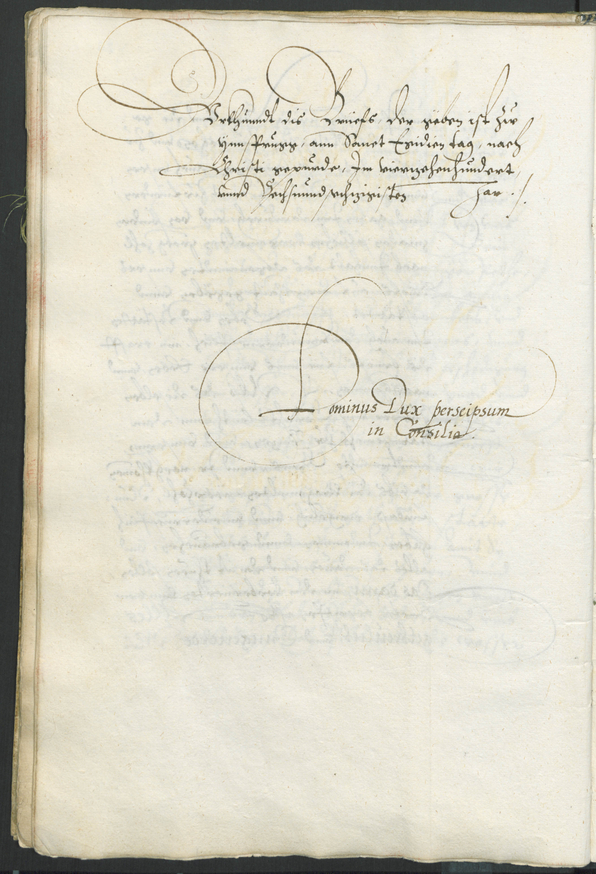 Urkhunndt dis Brieffs, der geben ist zw
Ynnsprugg, ann Sannct Egidien tag, nach
Christi gepurde, Im viertzehenhundert,
unnd Sechsunndachtzigisten Jar ./.
Dominus Dux per seipsum
in Consilio.